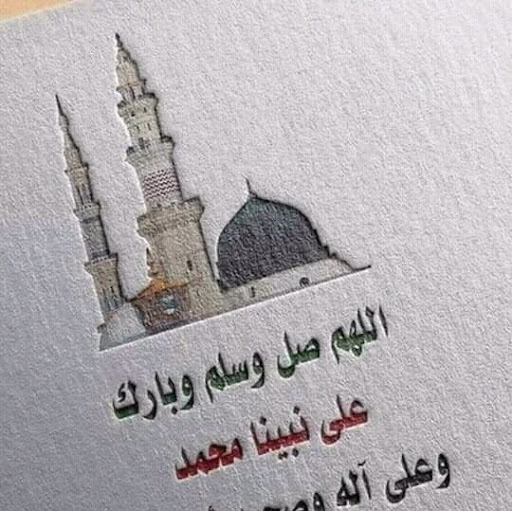 اللهم صل وسلم وبارك
على نبينا محمد
وعلى آله